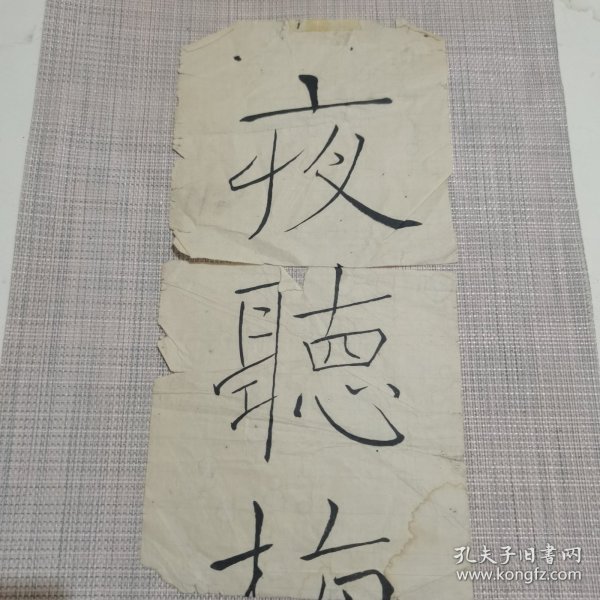 夜
聽
孔夫子旧書网
www.kongfz.com